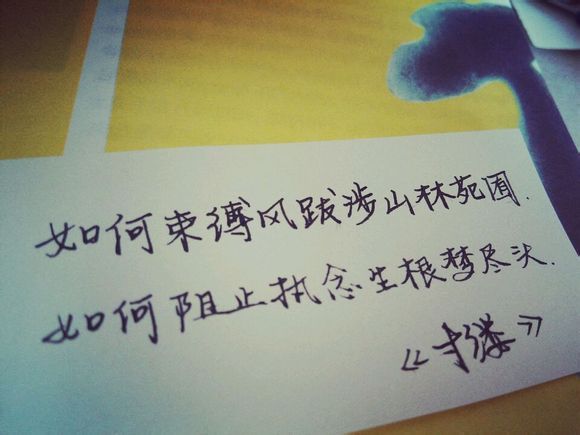 如何束缚风跋涉山林苑囿.
如何阻止执念生根梦尽头.
《寸缕》